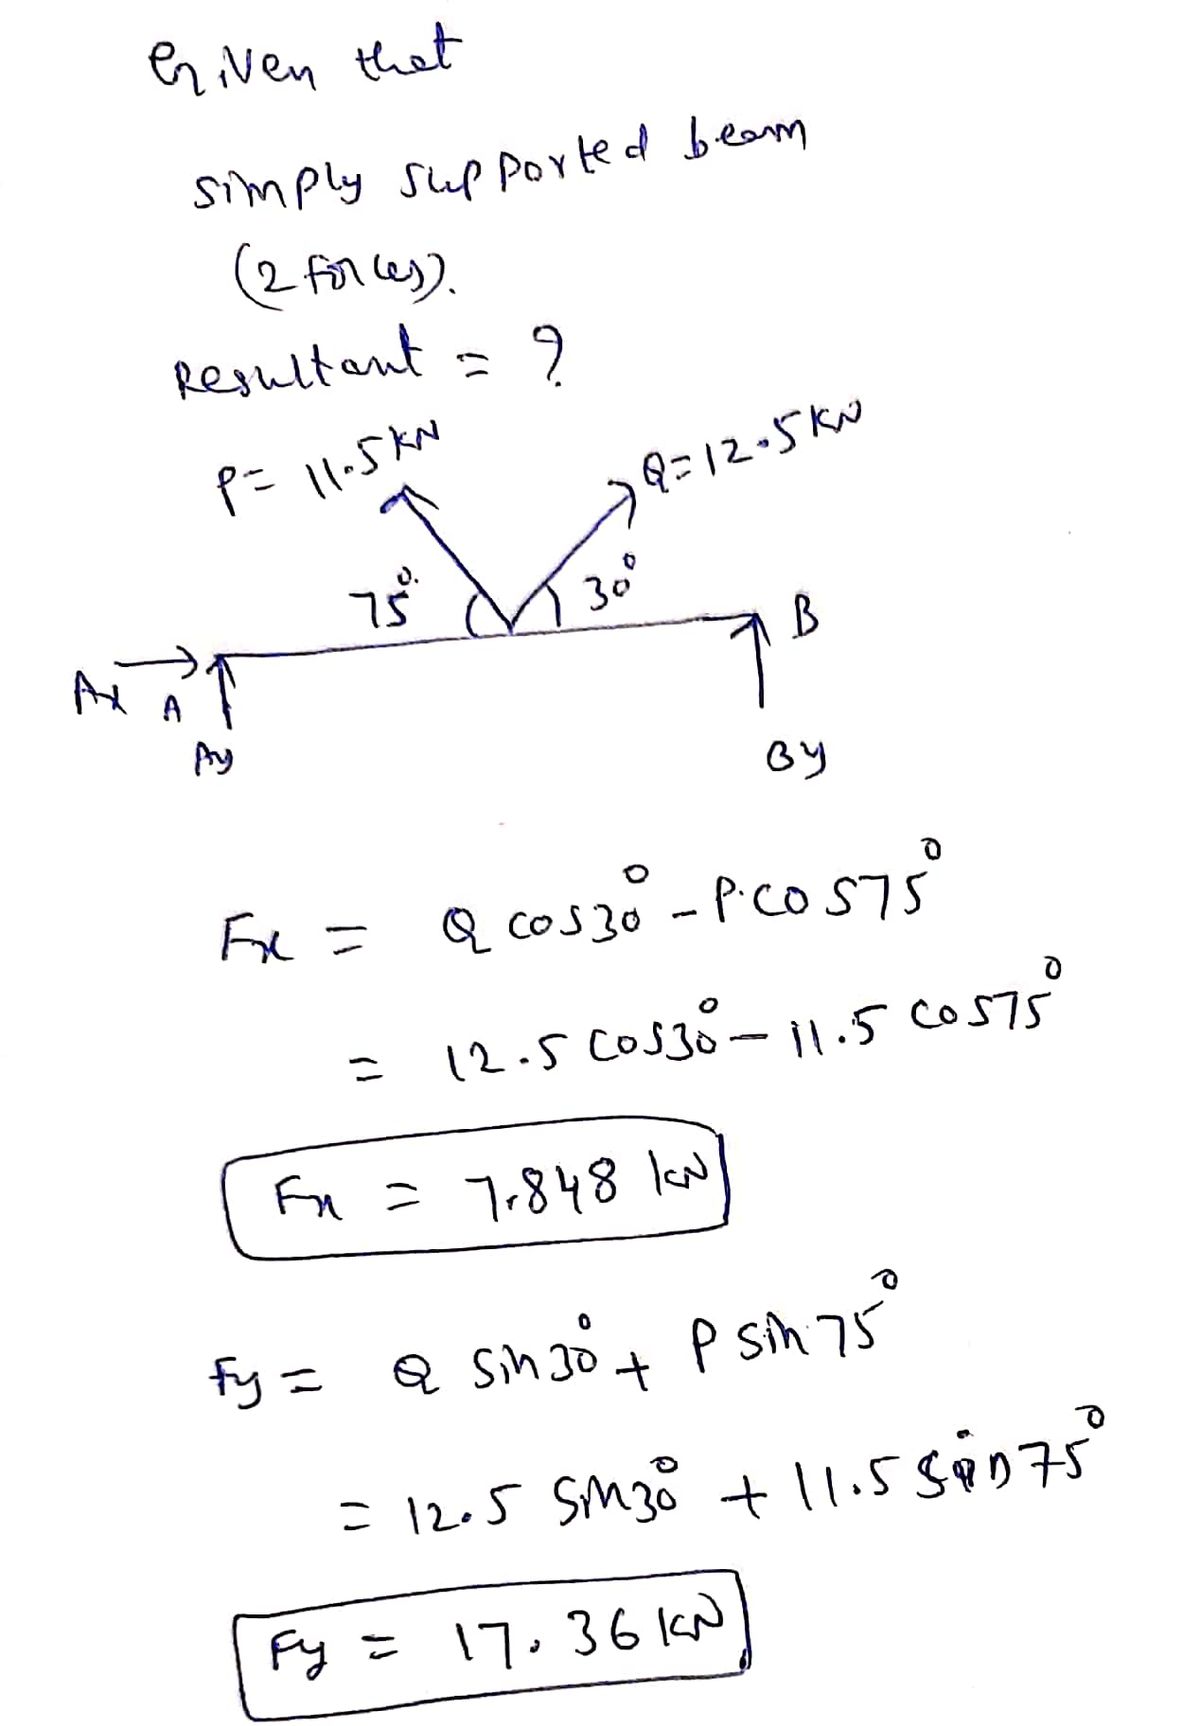 Given that
simply supported beam
(2 forces).
Resultant = ?
P = 11.5 KN
Q = 12.5 KN
75°
30°
B
Ax
A
Ay
By
Fx = Q cos30° - P.cos75°
= 12.5 cos30° - 11.5 cos75°
Fx = 7.848 kN
Fy = Q sin30° + P sin75°
= 12.5 sin30° + 11.5 sin75°
Fy = 17.36 kN